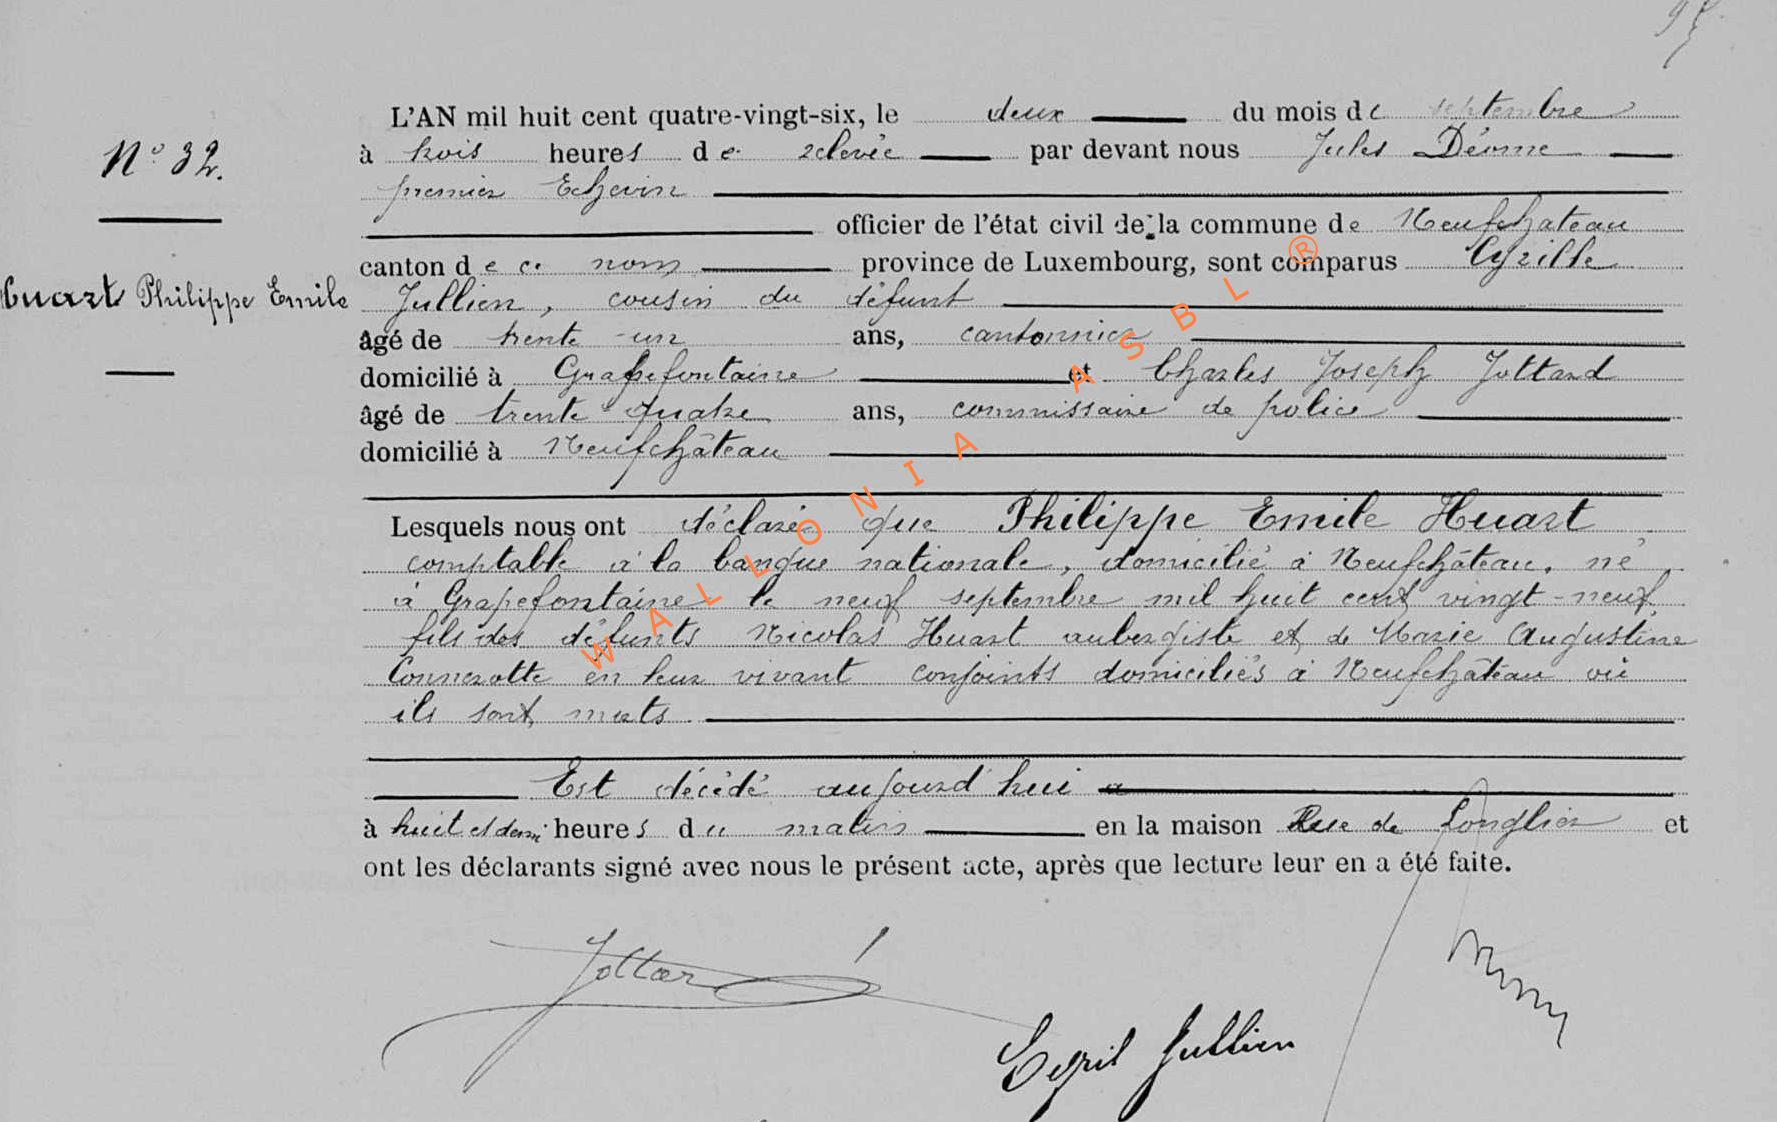 95
L'AN mil huit cent quatre-vingt-six, le deux du mois de septembre
N° 32. à trois heures de relevée par devant nous Jules Déome
premier Echevin
officier de l'état civil de la commune de Neufchateau
canton de ce nom province de Luxembourg, sont comparus Cyrille
Huart Philippe Emile Jullien, cousin du défunt
âgé de trente-un ans, cantonnier
domicilié à Grapefontaine et Charles Joseph Jottard
âgé de trente-quatre ans, commissaire de police
domicilié à Neufchâteau
Lesquels nous ont déclaré que Philippe Emile Huart
comptable à la banque nationale, domicilié à Neufchâteau, né
à Grapefontaine le neuf septembre mil huit cent vingt-neuf,
fils des défunts Nicolas Huart aubergiste et de Marie Augustine
Connerotte en leur vivant conjoints domiciliés à Neufchâteau où
ils sont morts
Est décédé aujourd'hui
à huit et demi heures du matin en la maison Rue de Longlier et
ont les déclarants signé avec nous le présent acte, après que lecture leur en a été faite.
Jottard
Cyril Jullien
WALLONIA ASBL ®